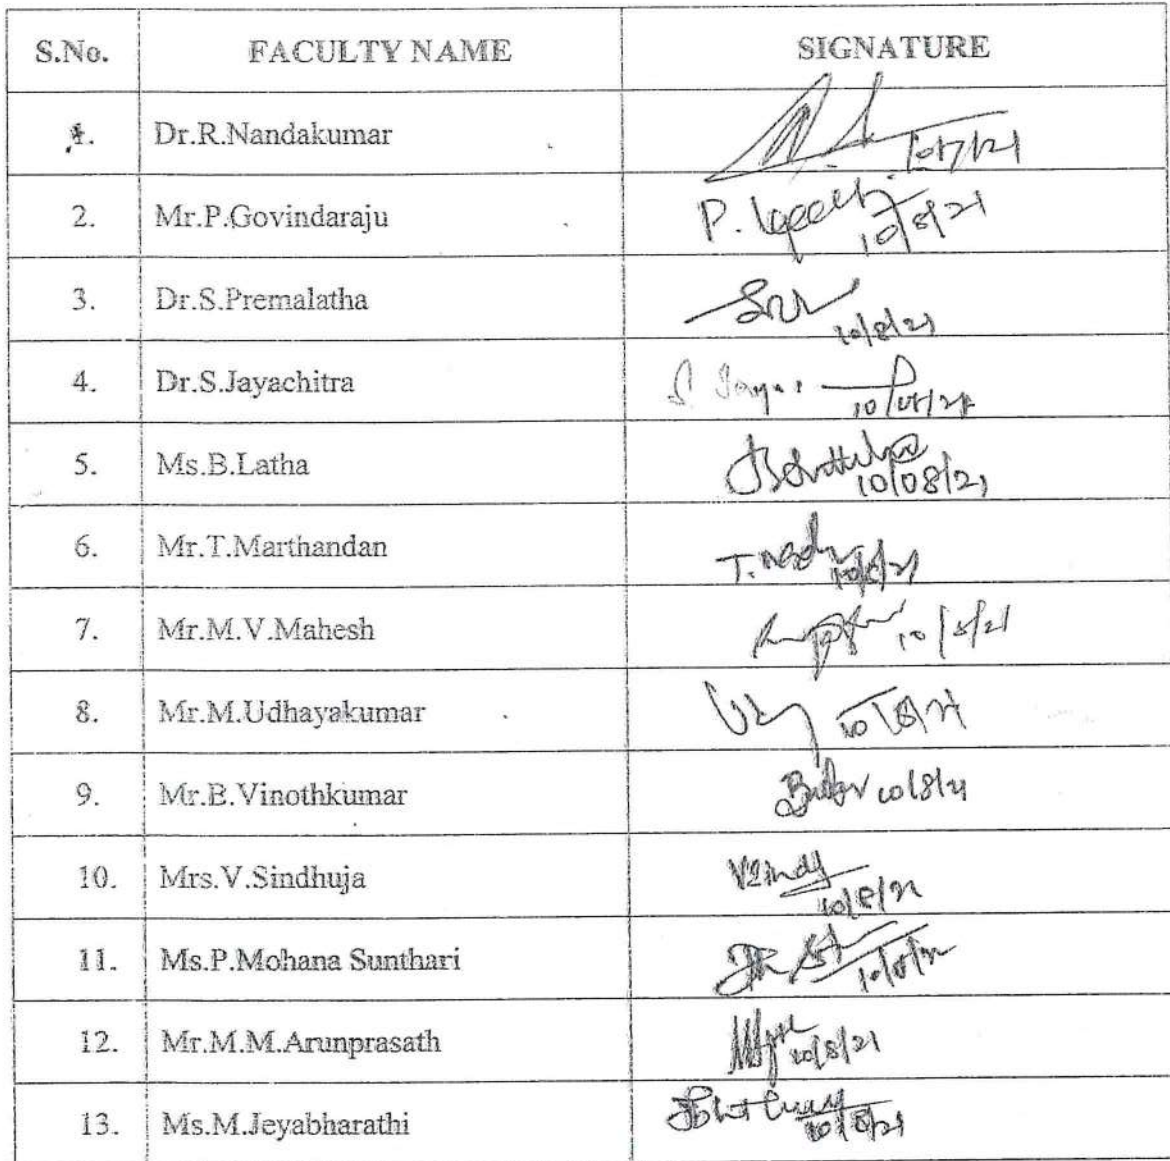 S.No. FACULTY NAME SIGNATURE
1. Dr.R.Nandakumar 10/7/21
2. Mr.P.Govindaraju P. 10/8/21
3. Dr.S.Premalatha 10/8/21
4. Dr.S.Jayachitra S. Jaya 10/08/21
5. Ms.B.Latha 10/08/21
6. Mr.T.Marthandan T. 10/8/21
7. Mr.M.V.Mahesh 10/8/21
8. Mr.M.Udhayakumar 10/8/21
9. Mr.B.Vinothkumar 10/8/21
10. Mrs.V.Sindhuja 10/8/21
11. Ms.P.Mohana Sunthari 10/8/21
12. Mr.M.M.Arunprasath 10/8/21
13. Ms.M.Jeyabharathi 10/8/21